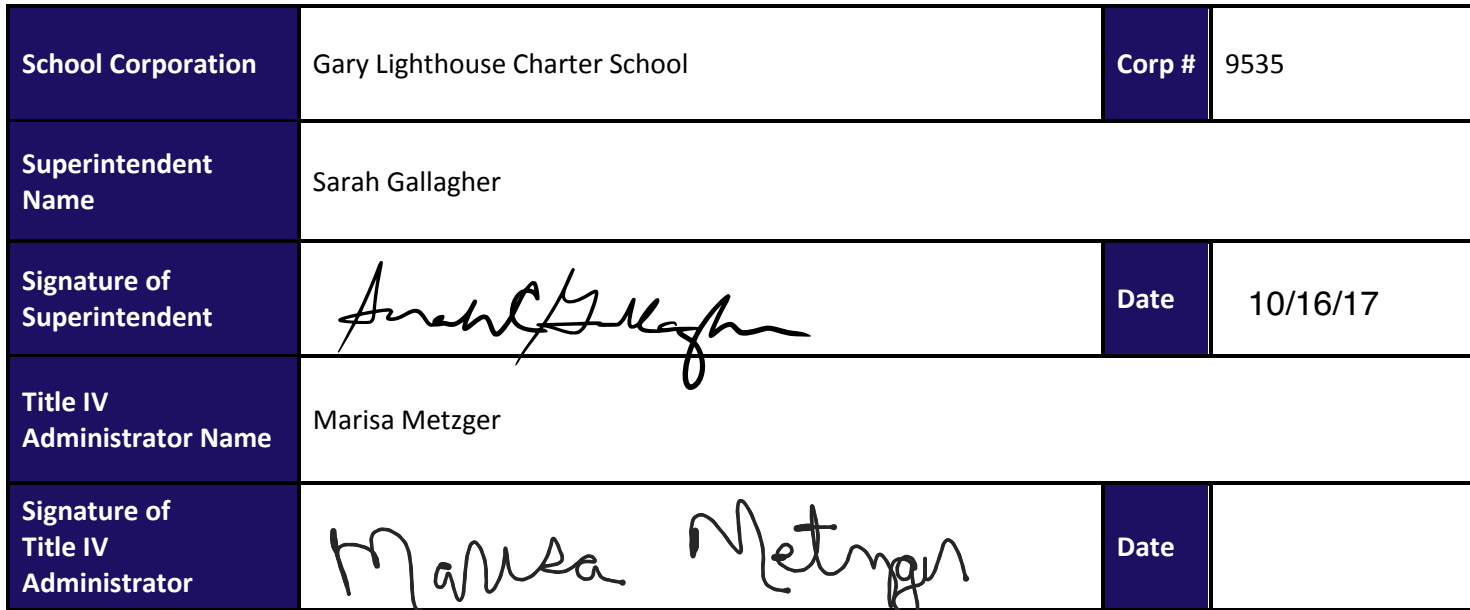 School Corporation Gary Lighthouse Charter School Corp # 9535
Superintendent
Name
Sarah Gallagher
Signature of
Superintendent
Sarah C Gallagher
Date 10/16/17
Title IV
Administrator Name
Marisa Metzger
Signature of
Title IV
Administrator
Marisa Metzger
Date